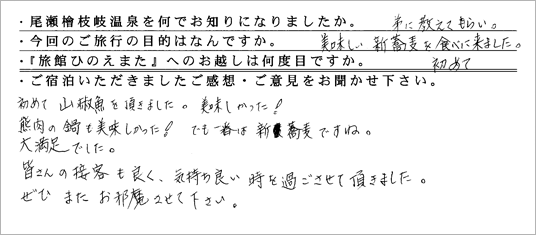 ・尾瀬檜枝岐温泉を何でお知りになりましたか。 弟に教えてもらい。
・今回のご旅行の目的はなんですか。 美味しい新蕎麦を食べに来ました。
・『旅館ひのえまた』へのお越しは何度目ですか。 初めて
・ご宿泊いただきましたご感想・ご意見をお聞かせ下さい。
初めて山椒魚を頂きました。美味しかった!
熊肉の鍋も美味しかった! でも一番は新蕎麦ですね。
大満足でした。
皆さんの接客も良く、気持ち良い時を過ごさせて頂きました。
ぜひまたお邪魔させて下さい。